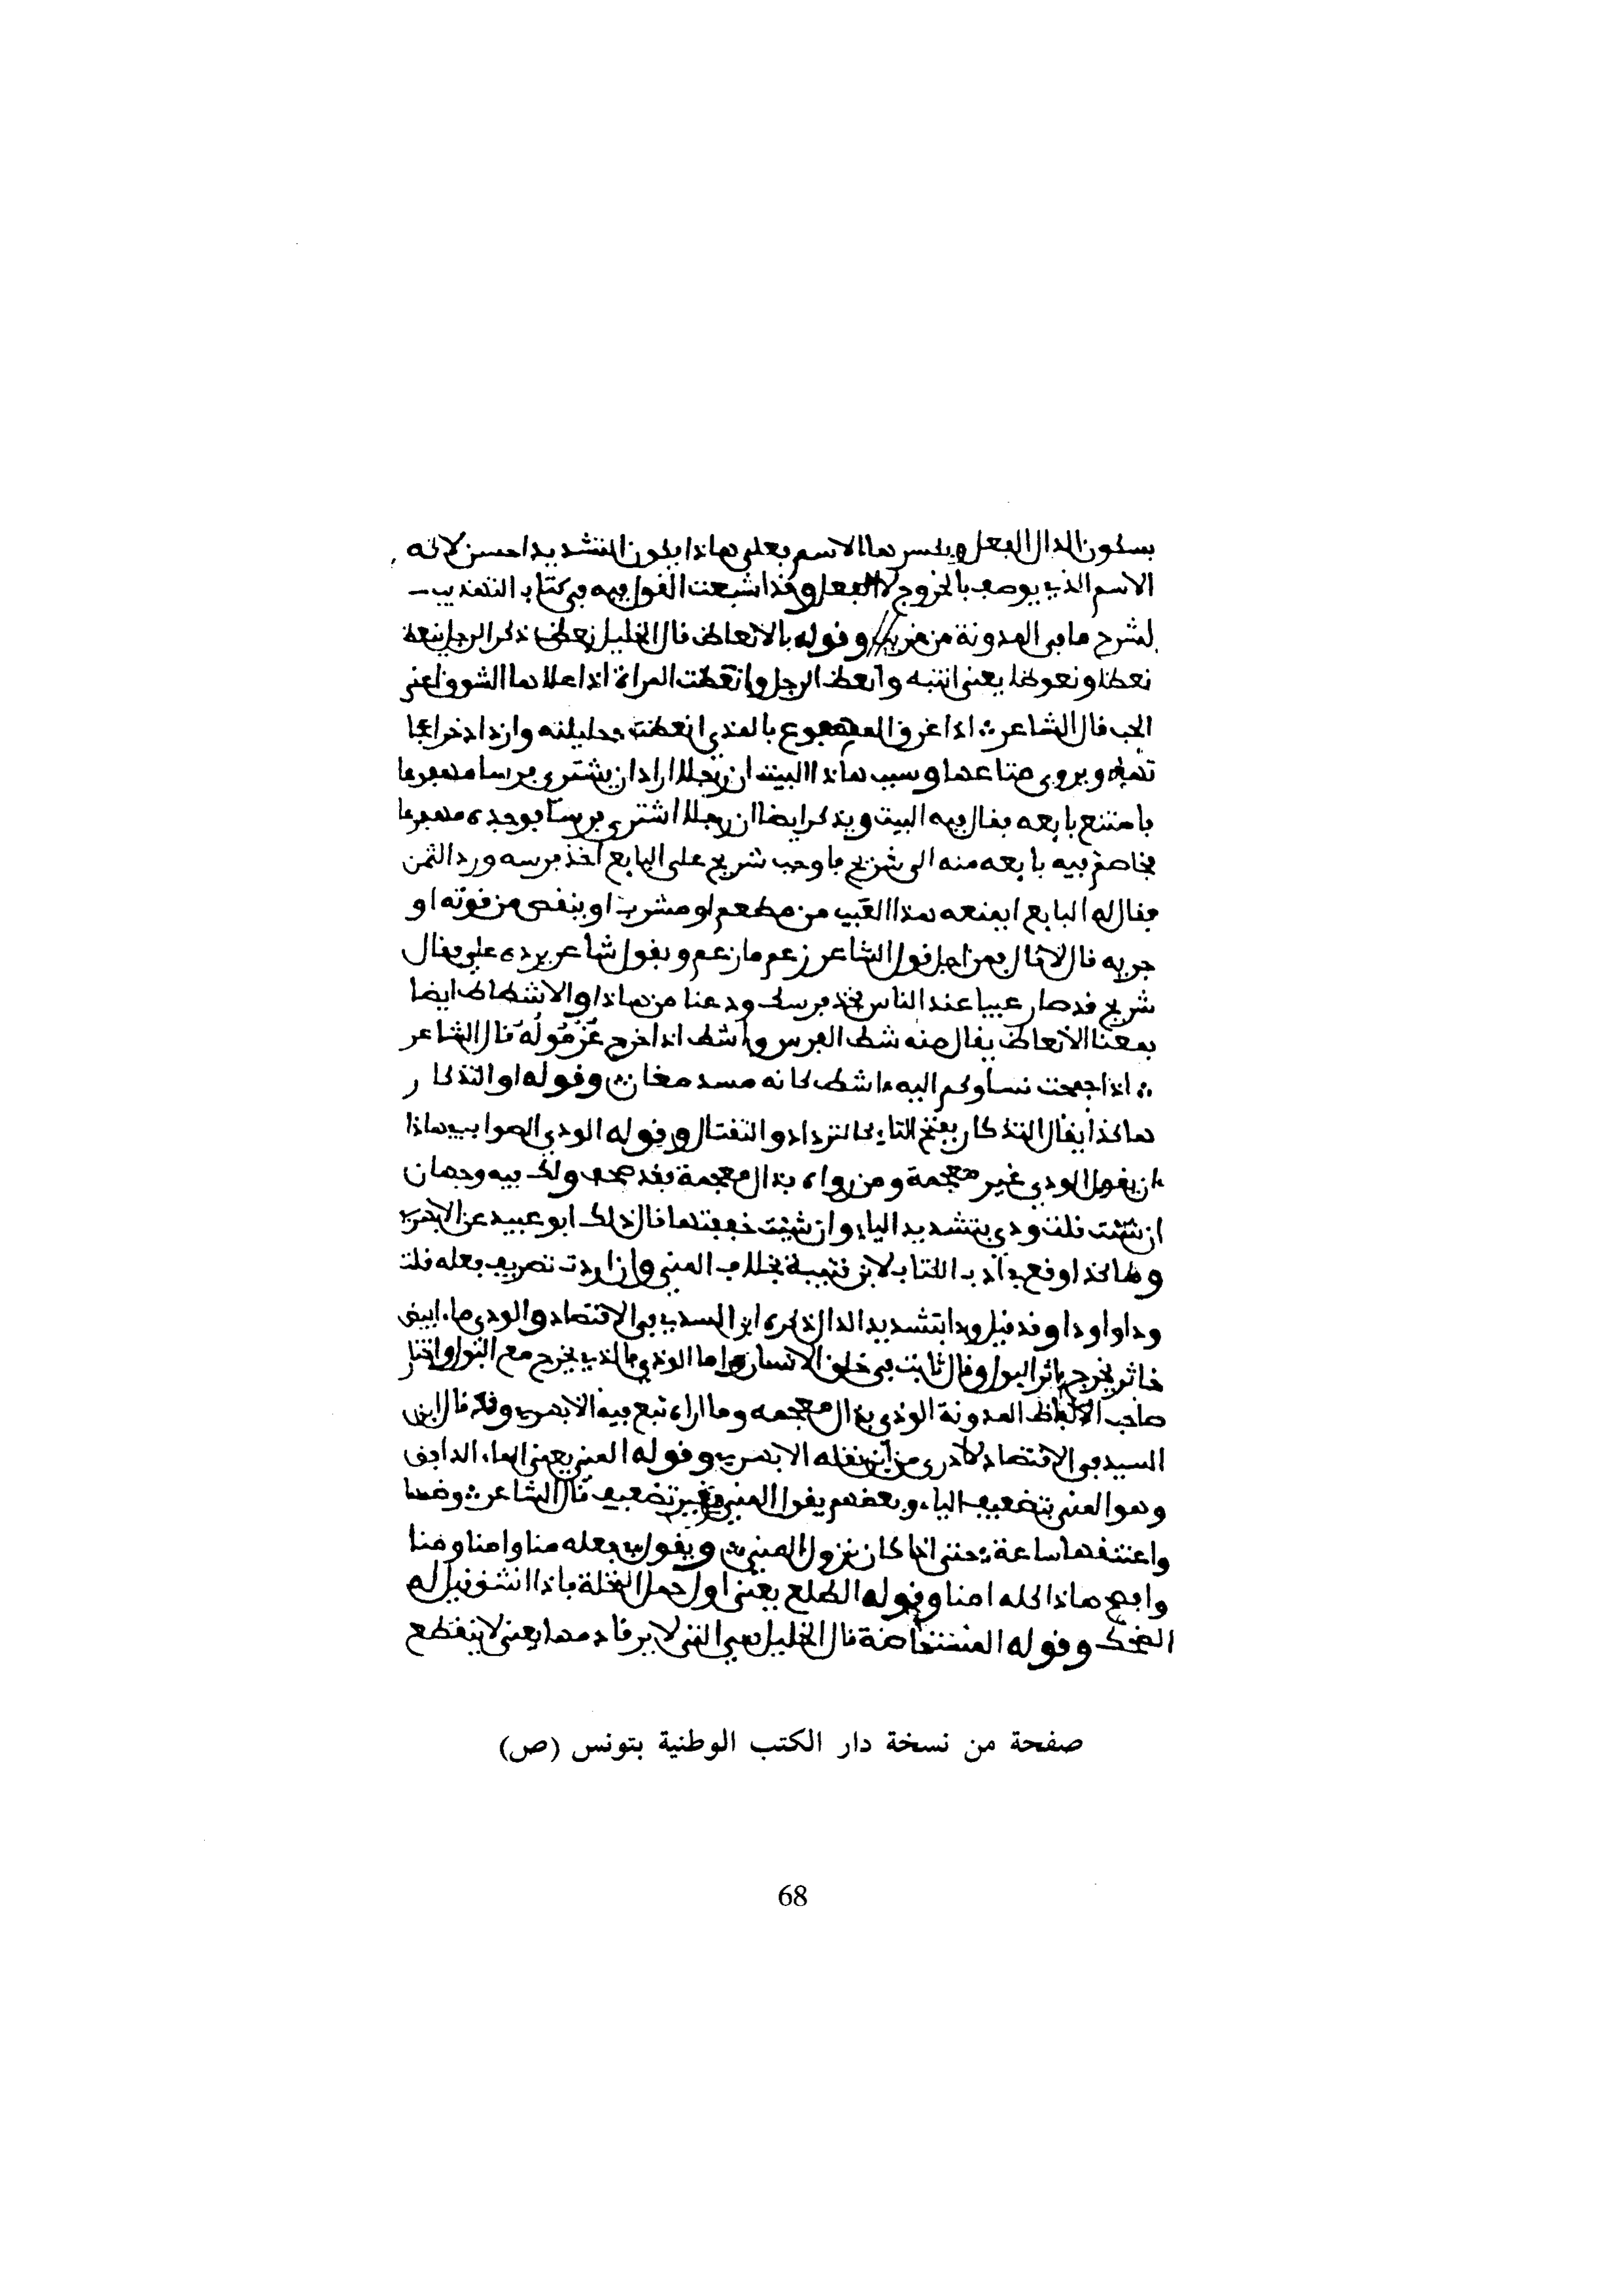 بسكون الدال الفعل وبكسرها الاسم فعلى هاذا يكون التشديد احسن لانه
الاسم الذي يوصف بالخروج لا الفعل وقد اشبعت القول فيه في كتاب التهذيب
لشرح ما في المدونة من غريب وقوله بالانعاظ قال الخليل نعظ ذكر الرجل ينعظ
نعظا ونعوظا يعني انتبه وانعظ الرجل وانعظت المراة اذا علاهما الشوق اعني
الحب قال الشاعر اذا عرق المهقوع بالمرء انعظت حليلته وازداد حرا عجانها
ويروى متاعها وسبب هاذا البيت ان رجلا اراد ان يشتري فرسا مهقوعا
فامتنع بايعه فقال فيه البيت ويذكر ايضا ان رجلا اشترى فرسا فوجده مهقوعا
فخاصم فيه بايعه منه الى شريح فاوجب شريح على البايع اخذ فرسه ورد الثمن
فقال له البايع ايمنعه هذا العيب من مطعم او مشرب او ينقص من قوته او
جريه قال لا قال فمن اجل قول الشاعر زعم ما زعم ويقول شاعر يرده علي فقال
شريح قد صار عيبا عند الناس فخذ فرسك ودعنا من هاذا والاشظاظ ايضا
بمعنا الانعاظ يقال منه شظ الفرس واشظ اذا اخرج غرموله قال الشاعر
اذا جمحت نساوكم اليه اشظ كانه مسد مغار وقوله او التذكار
هاكذا يقال التذكار بفتح التاء كالترداد والتقتال وقوله الودي الصواب في هاذا
ان يقول الودي غير معجمة ومن رواه بذال معجمة فقد صحف ولك فيه وجهان
ان شئت قلت ودي بتشديد الياء وان شئت خففتها قال ذلك ابو عبيد عن الاموي
وهاكذا وقع في ادب الكتاب لابن قتيبة بخلاف المني وان اردت تصريف فعله قلت
ودا واودا وقد قيل ودا بتشديد الدال ذكره ابن السيد في الاقتضاب والودي ماء ابيض
خاثر يخرج باثر البول وقال ثابت في خلق الانسان واما الوذي فالذي يخرج مع البول واختار
صاحب الالفاظ المدونة الوذي بذال معجمة وما اراه تبع فيه الا الابهري وقد قال ابن
السيد في الاقتضاب لا ادري من اين نقله الابهري وقوله المني يعني الماء الدافق
وهو المني بتضعيف الياء وبعضهم يقول المني بغير تضعيف قال الشاعر وضمها
واعتنقها ساعة حتى اذا كان نزول المني ويقول في فعله منا وامنا ومنا
وافصح هاذا كله امنا وقوله الطلع يعني اول حمل النخلة فاذا انشق قيل له
الضحك وقوله المستحاضة قال الخليل هي التي لا يرقا دمها يعني لا ينقطع
صفحة من نسخة دار الكتب الوطنية بتونس (ص)
68